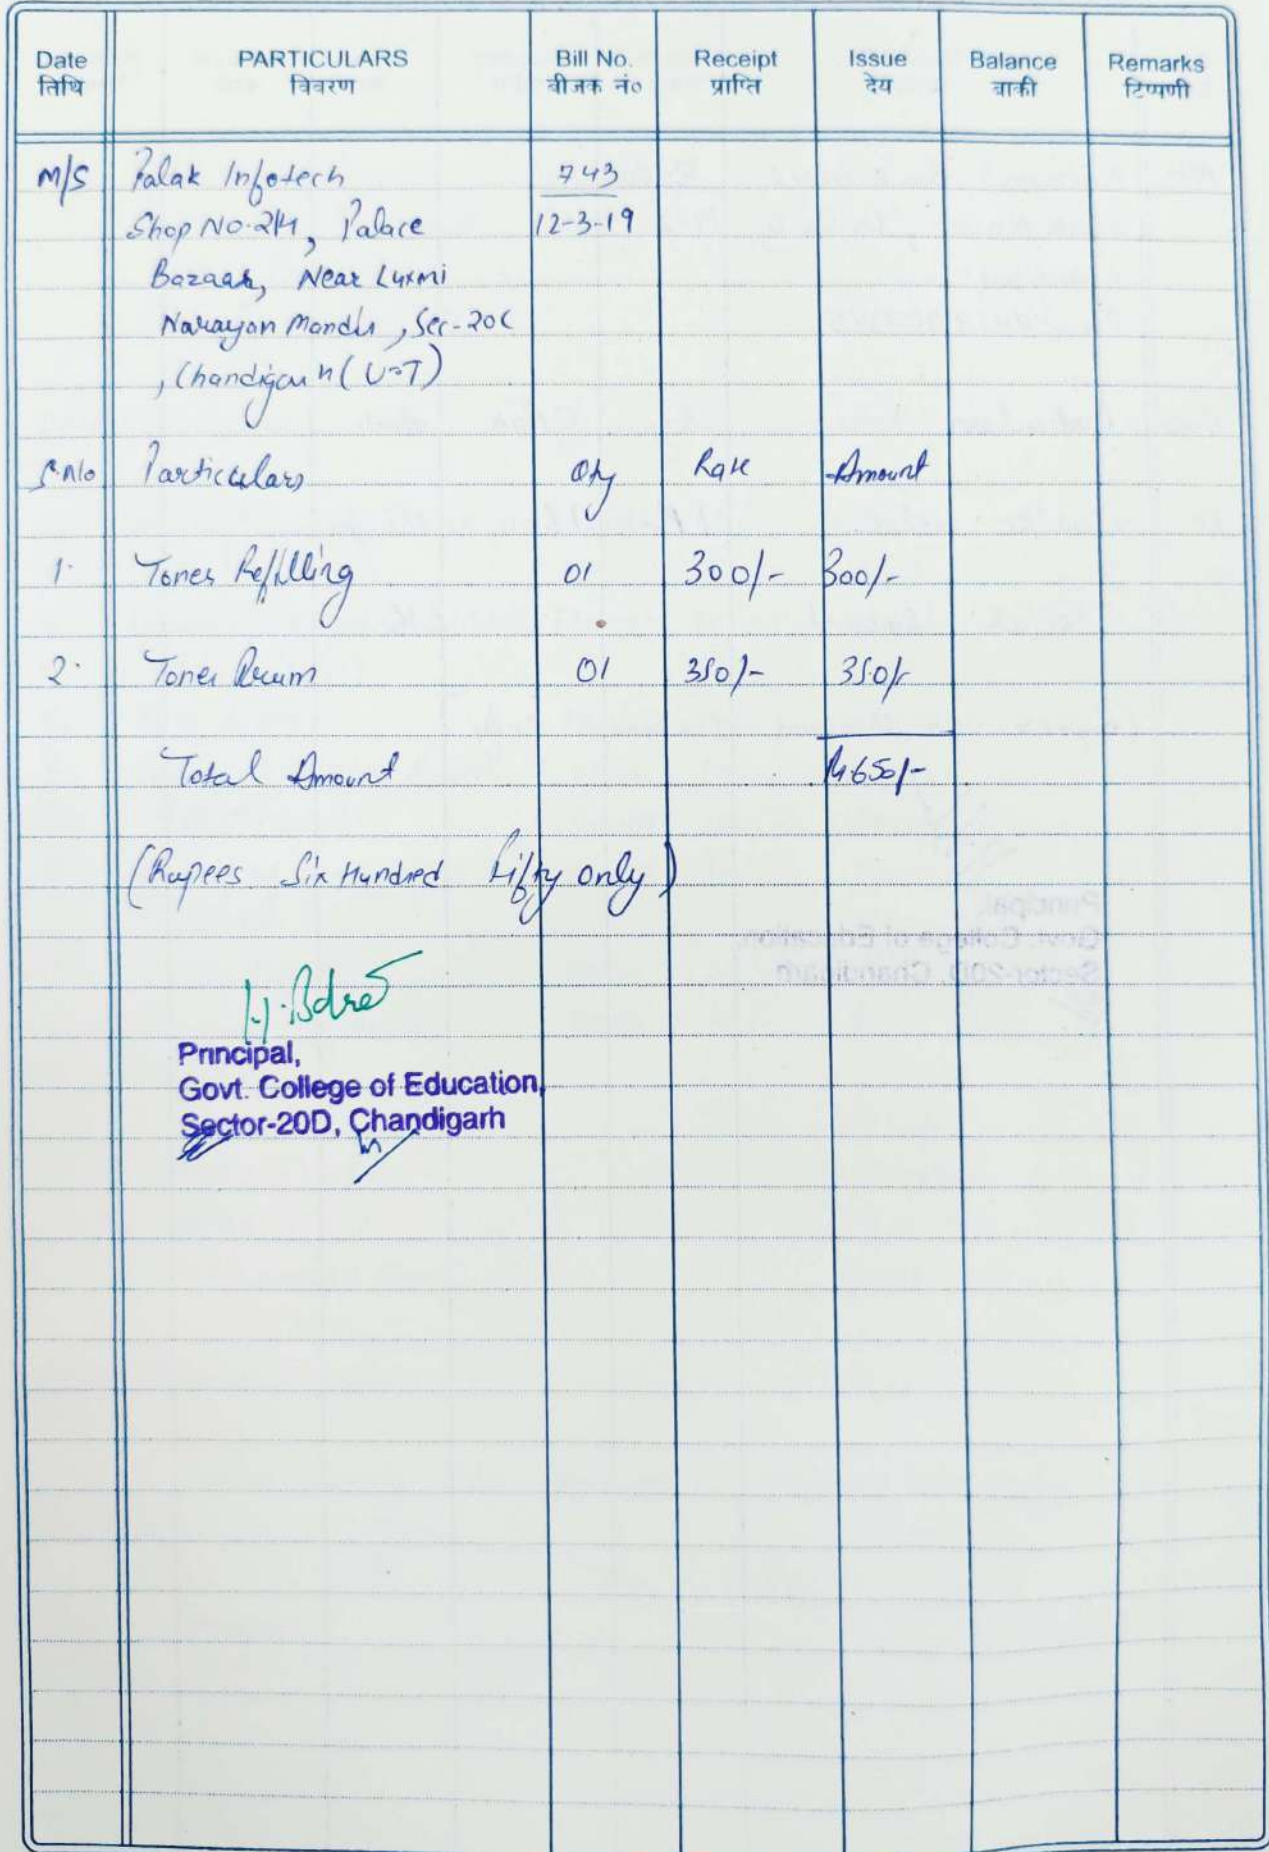 Date PARTICULARS Bill No. Receipt Issue Balance Remarks
तिथि विवरण बीजक नं० प्राप्ति देय बाकी टिप्पणी
M/S Palak Infotech 743
Shop No. 214, Palace 12-3-19
Bazaar, Near Luxmi
Narayan Mandir, Sec-20C
, Chandigarh (U.T)
S.No Particulars Qty Rate Amount
1. Toner Refilling 01 300/- 300/-
2. Toner Drum 01 350/- 350/-
Total Amount 650/-
(Rupees Six Hundred Fifty only)
Principal,
Govt. College of Education,
Sector-20D, Chandigarh